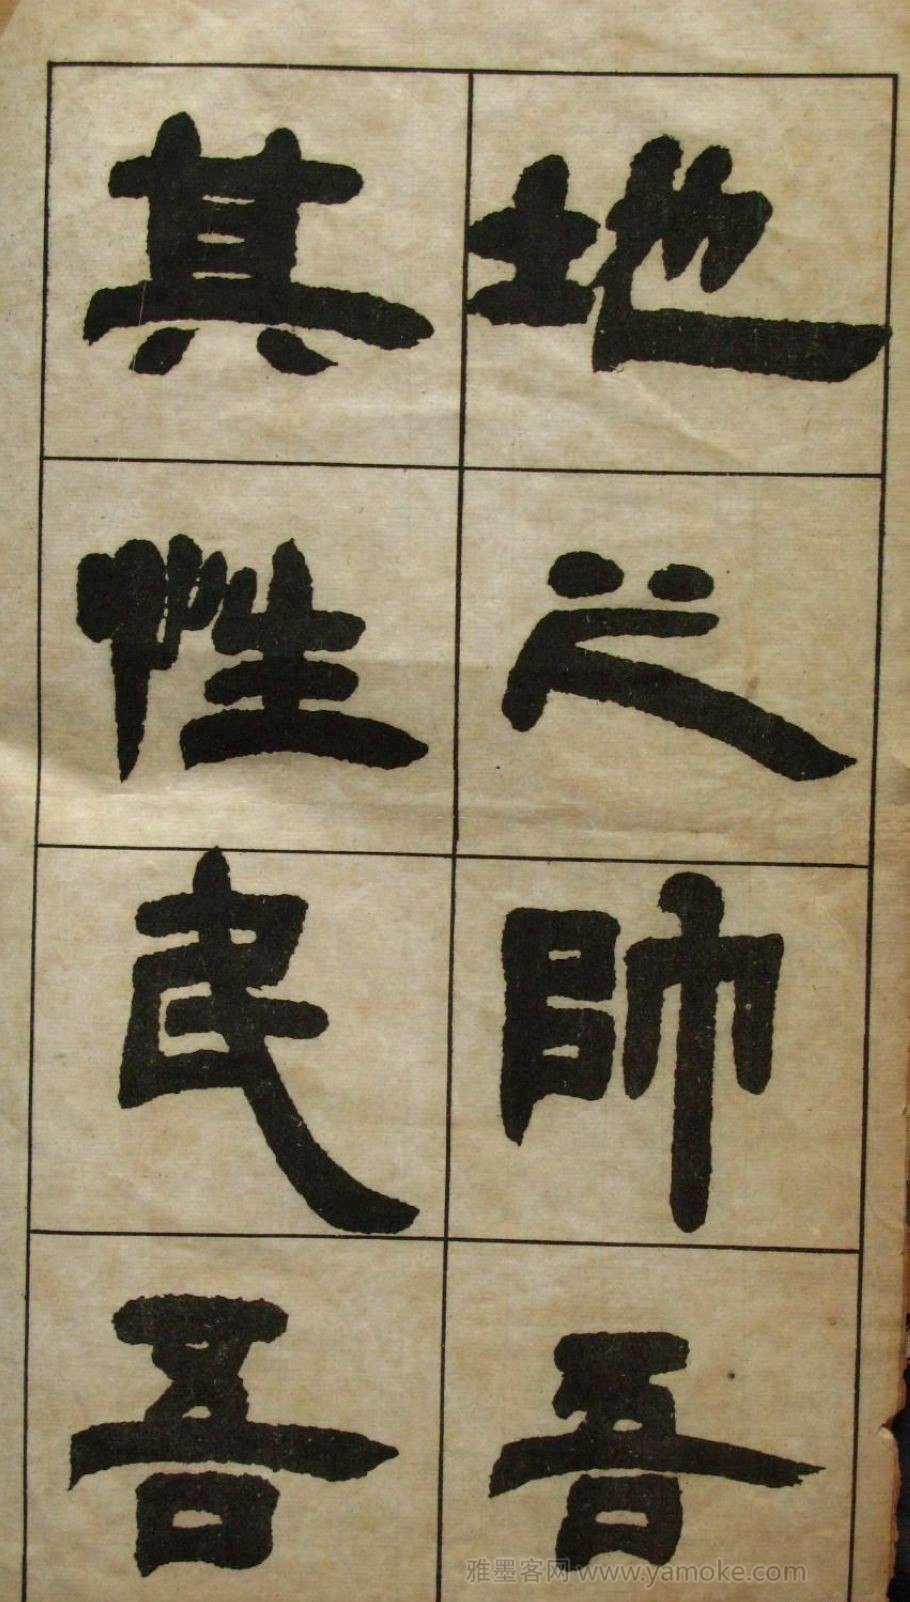 地之帥吾
其性民吾
雅墨客网 www.yamoke.com